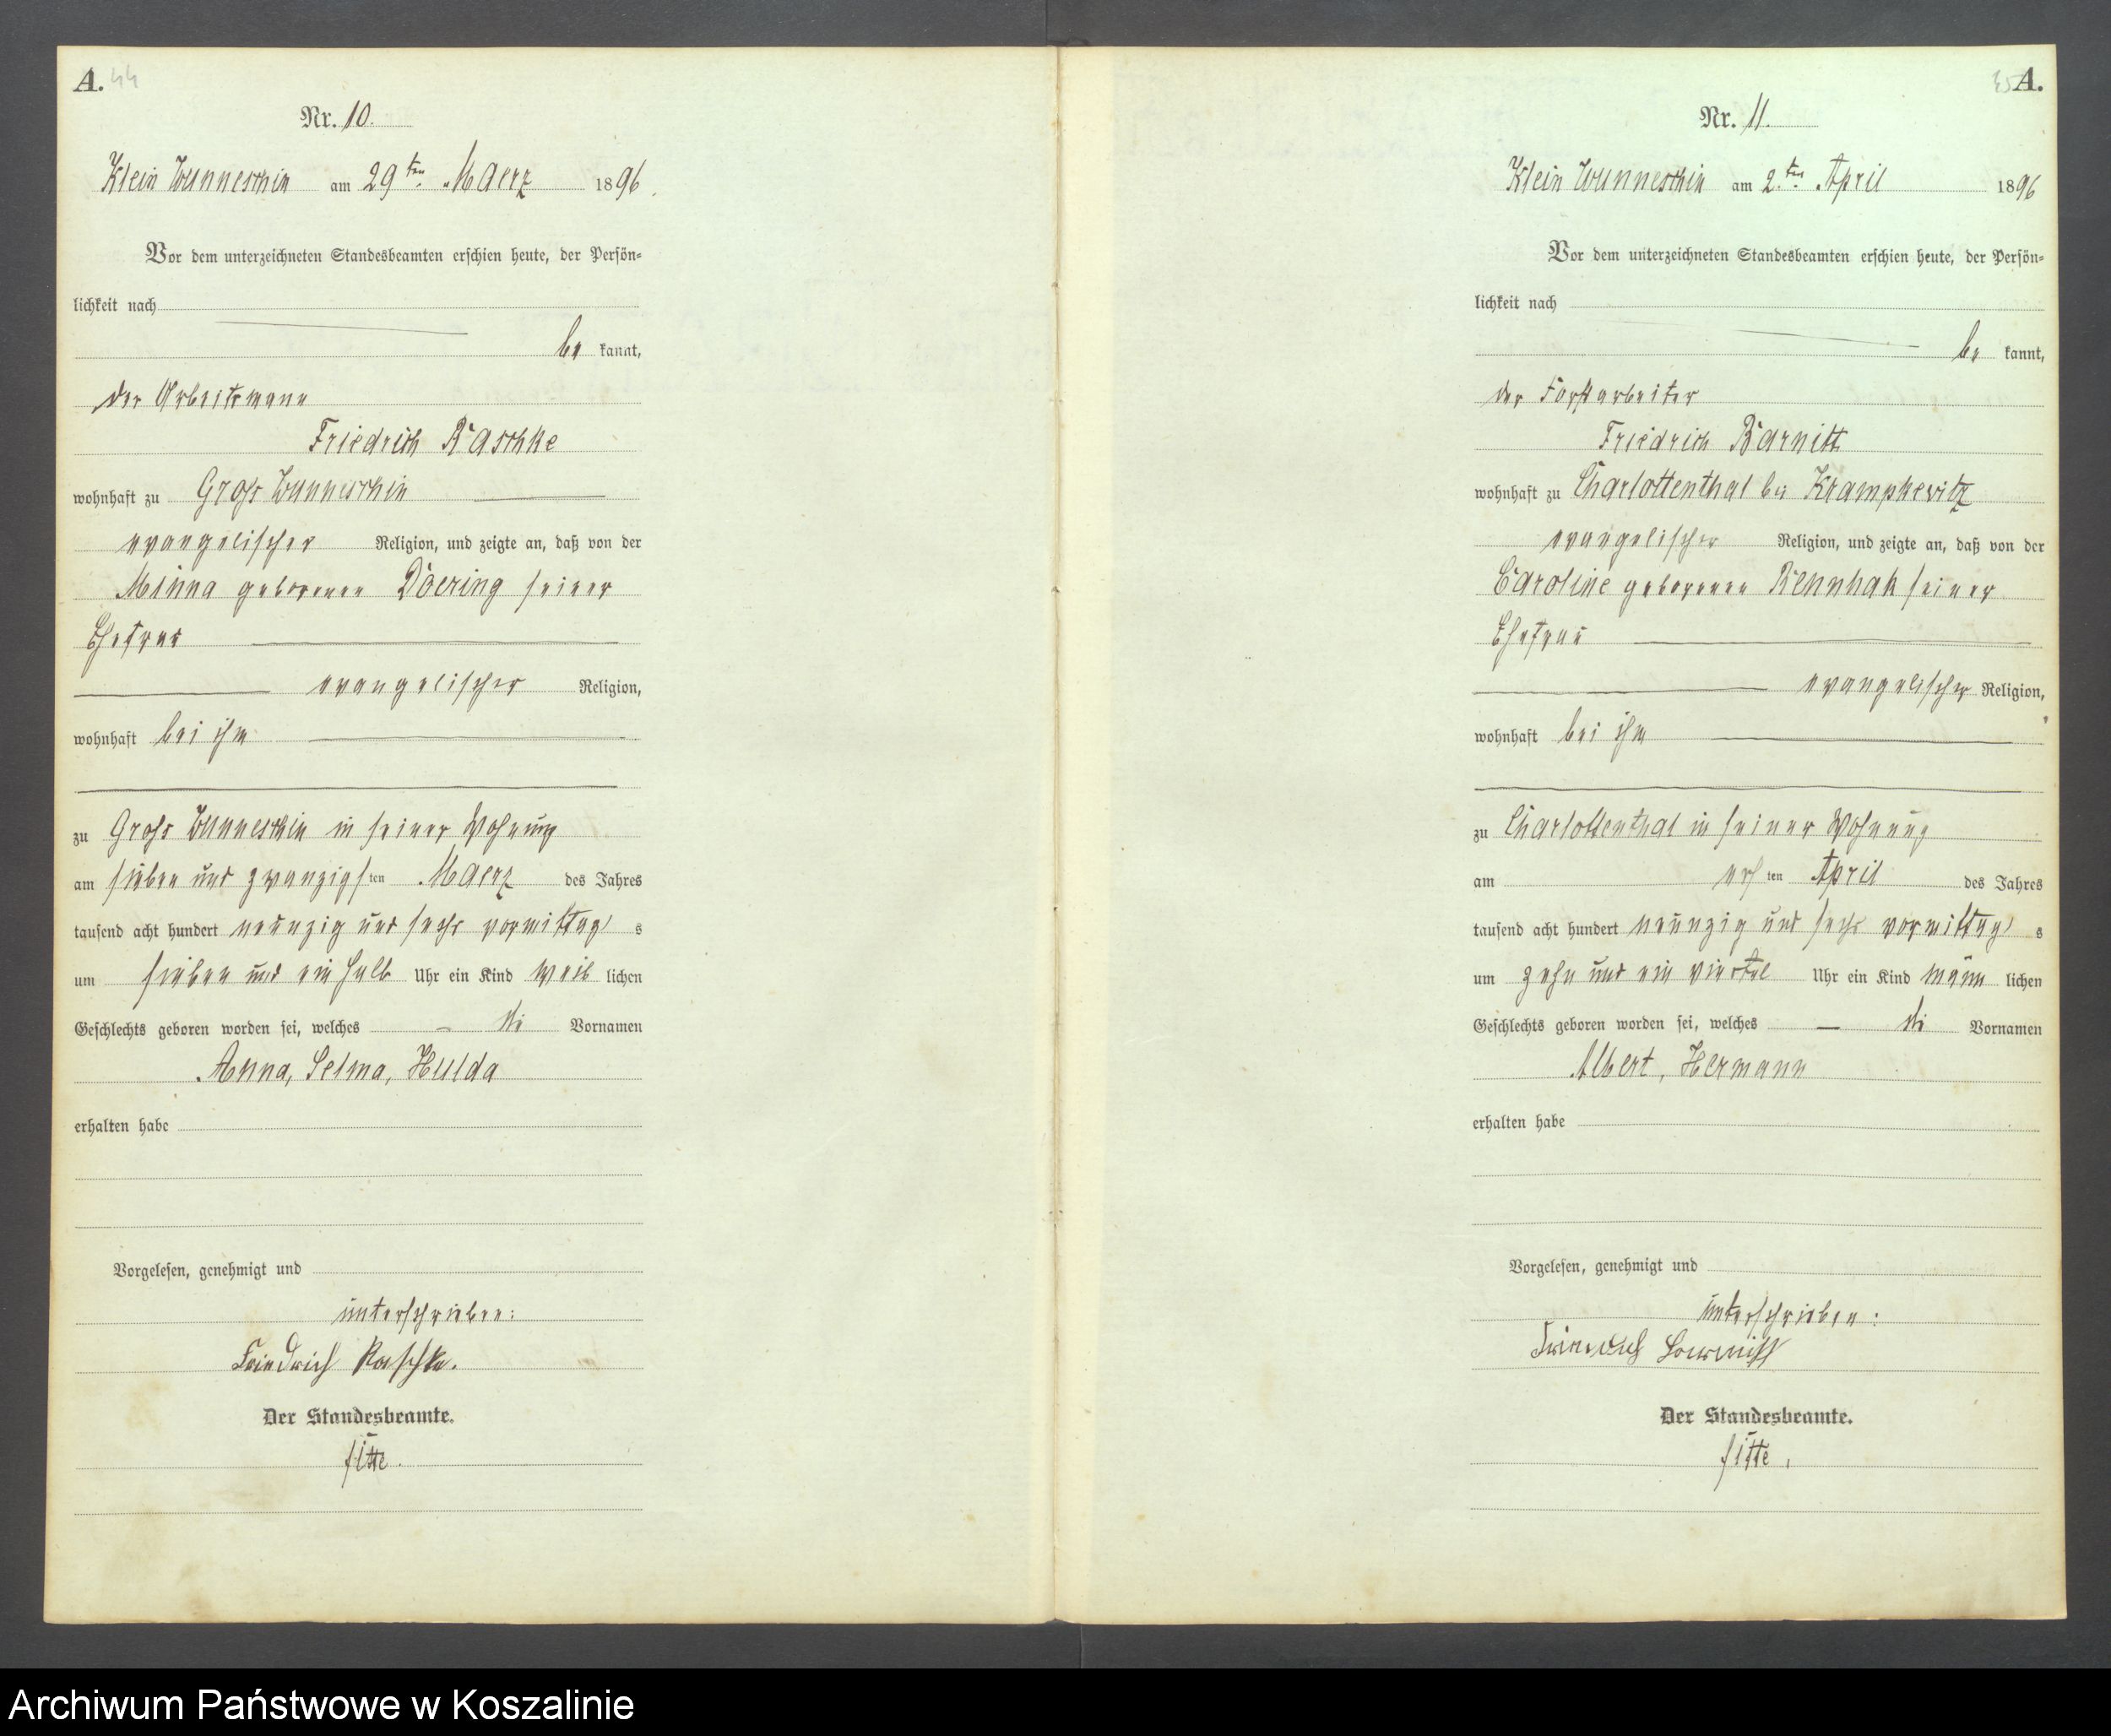 A. 44
Nr. 10.
Klein Wunneschin am 29ten Maerz 1896.
Vor dem unterzeichneten Standesbeamten erschien heute, der Persön-
lichkeit nach
be kannt,
der Arbeitsmann
Friedrich Raschke
wohnhaft zu Groß Wunneschin
evangelischer Religion, und zeigte an, daß von der
Minna geborenen Doering seiner
Ehefrau
evangelischer Religion,
wohnhaft bei ihm
zu Groß Wunneschin in seiner Wohnung
am sieben und zwanzigsten Maerz des Jahres
tausend acht hundert neunzig und sechs vormittags
um sieben und ein halb Uhr ein Kind weib lichen
Geschlechts geboren worden sei, welches — die Vornamen
Anna, Selma, Hulda
erhalten habe
Vorgelesen, genehmigt und
unterschrieben:
Friedrich Raschke.
Der Standesbeamte.
Sitte.
45 A.
Nr. 11.
Klein Wunneschin am 2ten April 1896
Vor dem unterzeichneten Standesbeamten erschien heute, der Persön-
lichkeit nach
be kannt,
der Forstarbeiter
Friedrich Barnitt
wohnhaft zu Charlottenthal bei Krampkewitz
evangelischer Religion, und zeigte an, daß von der
Caroline geborenen Rennhak seiner
Ehefrau
evangelischer Religion,
wohnhaft bei ihm
zu Charlottenthal in seiner Wohnung
am ersten April des Jahres
tausend acht hundert neunzig und sechs vormittags
um zehn und ein viertel Uhr ein Kind männ lichen
Geschlechts geboren worden sei, welches — die Vornamen
Albert, Hermann
erhalten habe
Vorgelesen, genehmigt und
unterschrieben:
Friedrich
Der Standesbeamte.
Sitte.
Archiwum Państwowe w Koszalinie